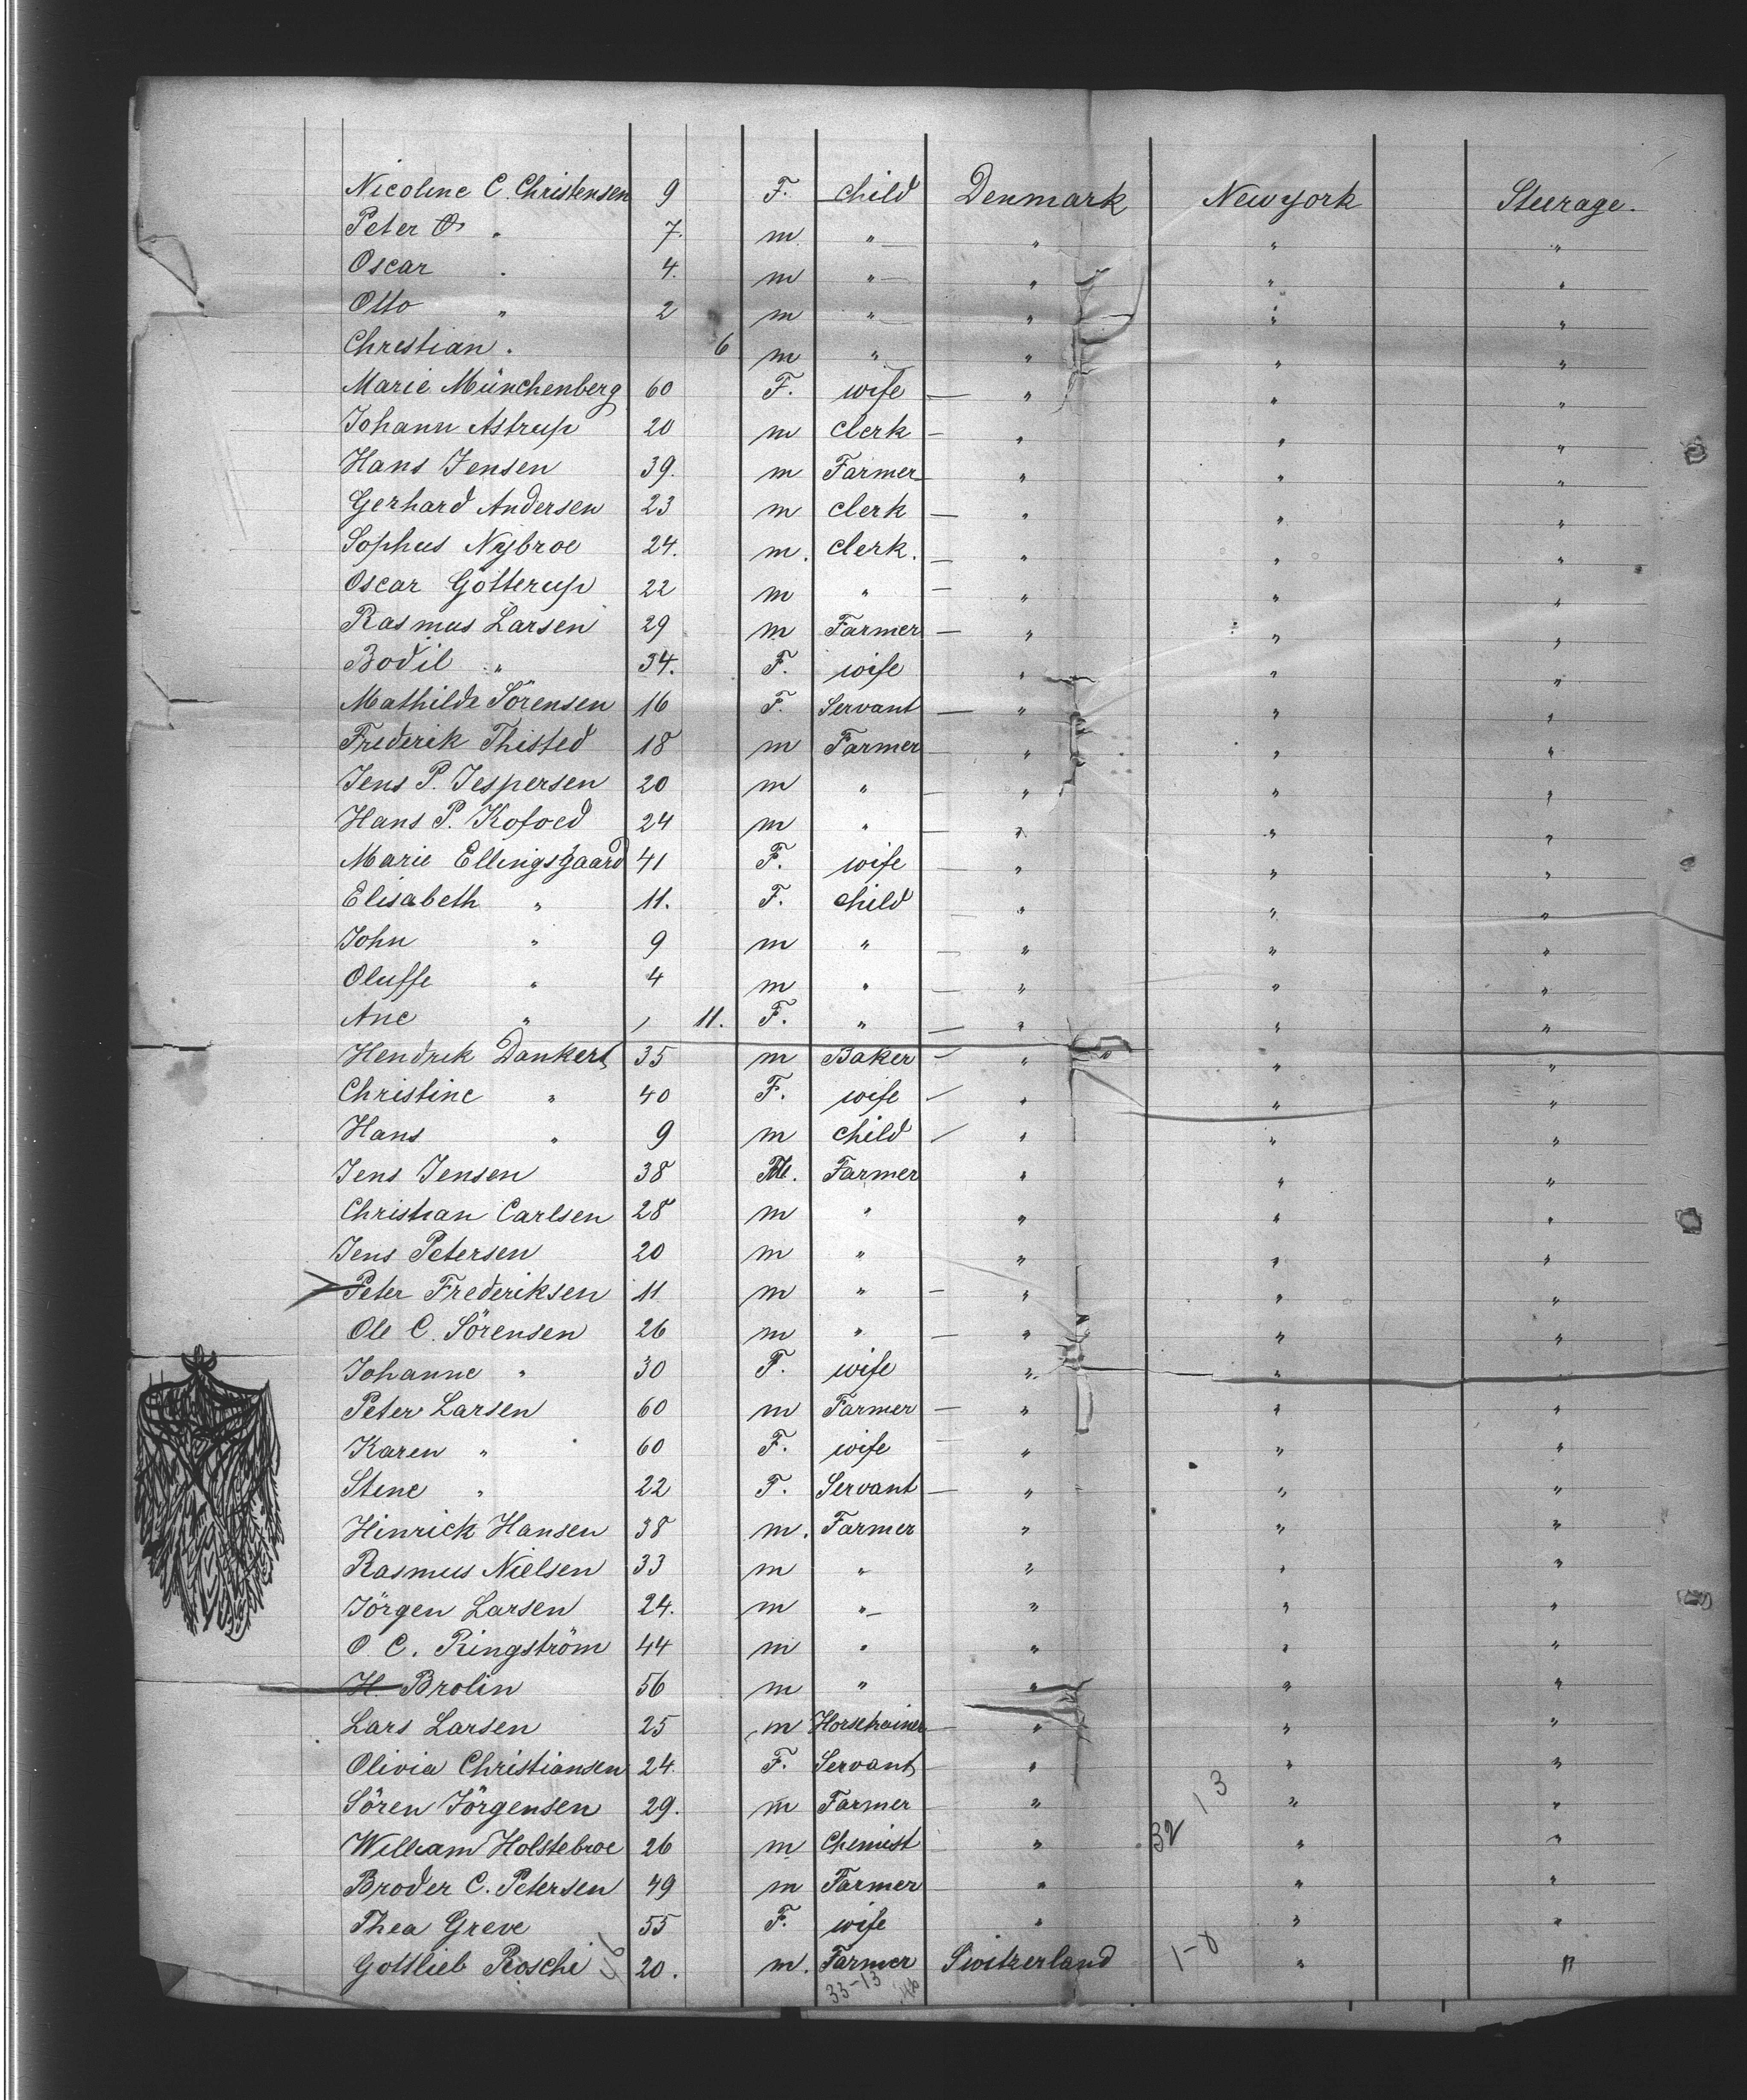 Nicoline C. Christensen 9 F. child Denmark New york Steerage.
Peter O. " 7. m " " " "
Oscar " 4. m " " " "
Otto " 2 m " " " "
Christian " 6 m " " " "
Marie Münchenberg 60 F. wife — " " "
Johann Astrup 20 m Clerk — " " "
Hans Jensen 39. m Farmer — " " "
Gerhard Andersen 23 m Clerk — " " "
Sophus Nybroe 24. m. Clerk. — " " "
Oscar Götterup 22 m " — " " "
Rasmus Larsen 29 m Farmer — " " "
Bodil " 34. F. wife " " "
Mathilde Sörensen 16 F. Servant — " " "
Frederik Thisted 18 m Farmer — " " "
Jens P. Jespersen 20 m " — " " "
Hans P. Kofoed 24 m " — " " "
Marie Ellingsgaard 41 F. wife — " " "
Elisabeth " 11. F. child — " " "
John " 9 m " — " " "
Oluffe " 4 m " — " " "
Ane " / 11. F. " — " " "
Hendrik Dankert 35 m Baker — " " "
Christine " 40 F. wife — " " "
Hans " 9 m child — " " "
Jens Jensen 38 M. Farmer " " "
Christian Carlsen 28 m " " " "
Jens Petersen 20 m " " " "
Peter Frederiksen 11 m " — " " "
Ole C. Sörensen 26 m " — " " "
Johanne " 30 F. wife " " "
Peter Larsen 60 m Farmer — " " "
Karen " 60 F. wife — " " "
Stine " 22 F. Servant — " " "
Hinrick Hansen 38 m. Farmer " " "
Rasmus Nielsen 33 m " " " "
Jörgen Larsen 24. m " " " "
O. C. Ringström 44 m " " " "
H. Brolin 56 m " " " "
Lars Larsen 25 m Horsetrainer — " " "
Olivia Christiansen 24. F. Servant — " " "
Sören Jörgensen 29. m Farmer — " 13 " "
William Holstebroe 26 m Chemist — " 32 " "
Broder C. Petersen 49 m Farmer — " " "
Thea Greve 55 F. wife " " "
Gottlieb Roschi 20. m. Farmer Switzerland 1-0 " "
33-13